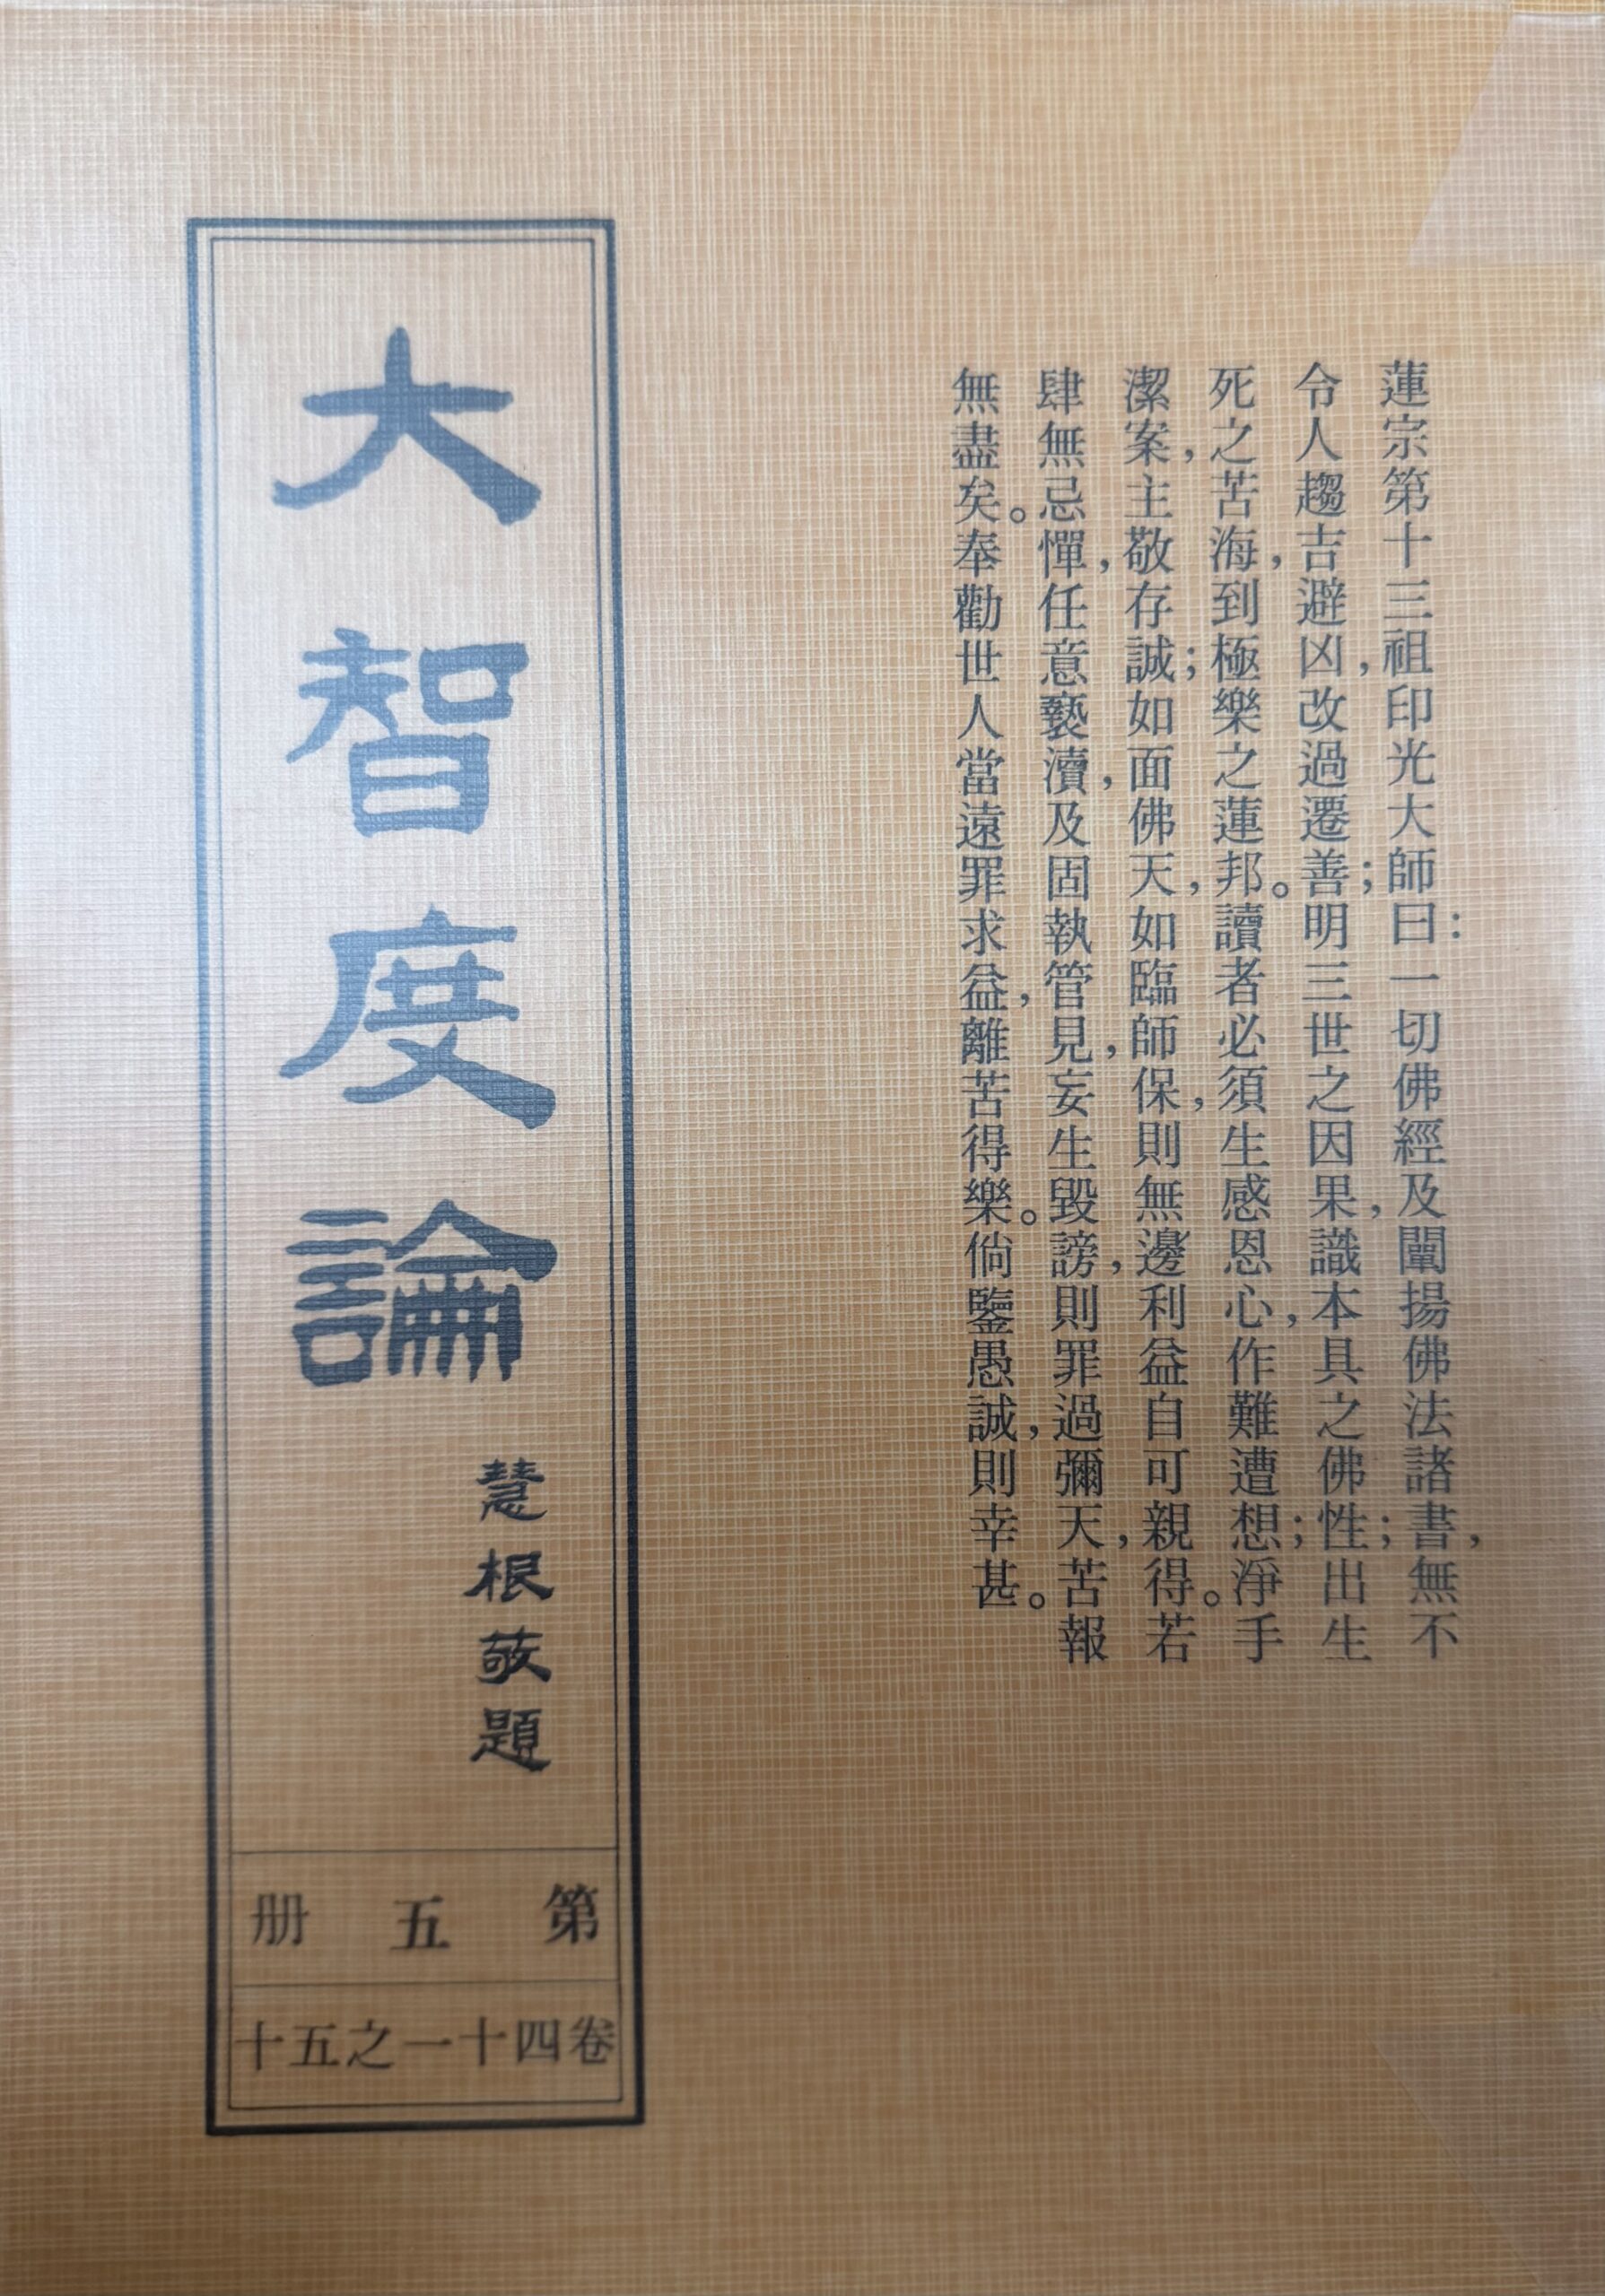 蓮宗第十三祖印光大師曰：一切佛經及闡揚佛法諸書，無不
令人趨吉避凶，改過遷善；明三世之因果，識本具之佛性；出生
死之苦海，到極樂之蓮邦。讀者必須生感恩心，作難遭想；淨手
潔案，主敬存誠；如面佛天，如臨師保，則無邊利益自可親得。若
肆無忌憚，任意褻瀆，及固執管見，妄生毀謗，則罪過彌天，苦報
無盡矣。奉勸世人當遠罪求益，離苦得樂。倘鑒愚誠，則幸甚。
大智度論
慧根敬題
第五册
卷四十一之五十